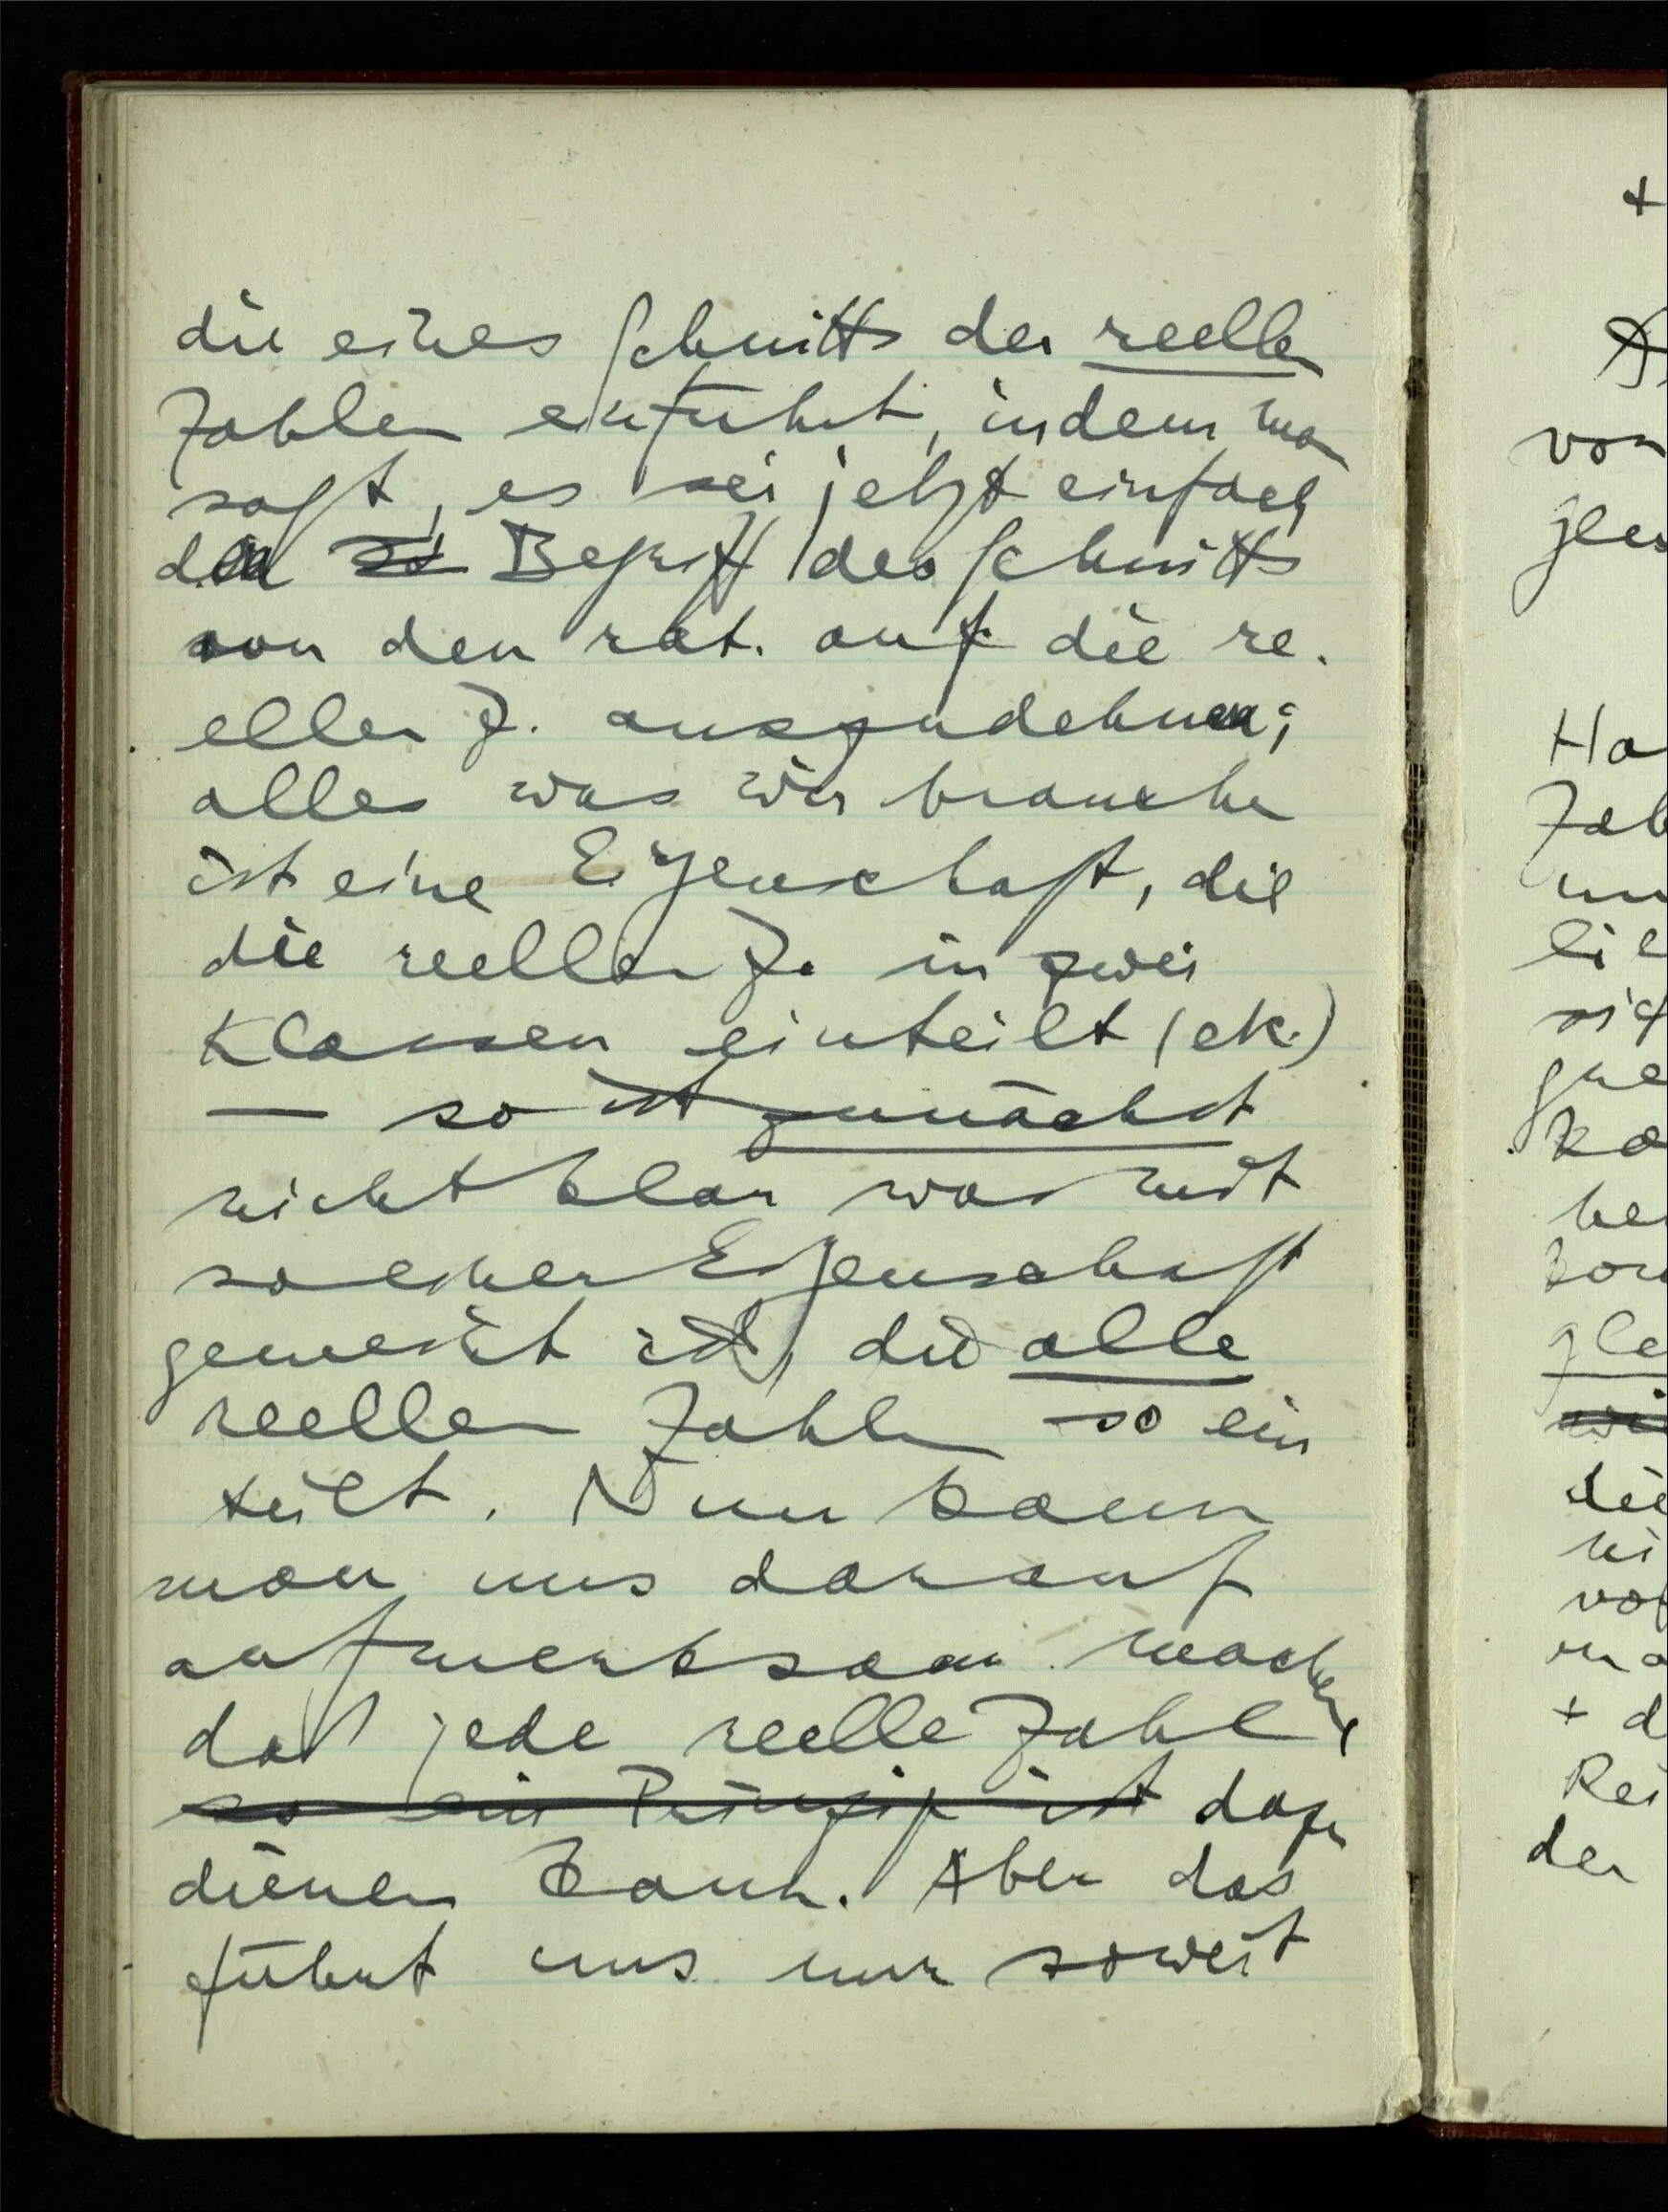 die eines Schnitts der reellen
Zahlen einführt, indem man
sagt, es sei jetzt einfach
der Begriff des Schnitts
von den rat. auf die re-
ellen Z. auszudehnen;
alles was wir brauchen
ist eine Eigenschaft, die
die reellen Z. in zwei
Klassen einteilt (etc.)
— so ist zunächst
nicht klar was mit
so einer Eigenschaft
gemeint ist, die alle
reellen Zahlen so ein
teilt. Nun kann
man uns darauf
aufmerksam machen,
daß jede reelle Zahl
so ein Prinzip ist dazu
dienen kann. Aber das
führt uns nur soweit
+
von
Ha
die
+ d
der